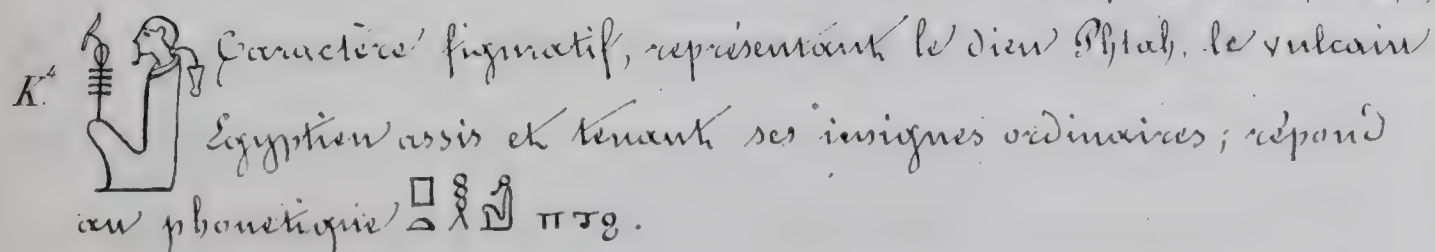 K.⁴ Caractère figuratif, représentant le dieu Phtah, le vulcain
Égyptien assis et tenant ses insignes ordinaires ; répond
au phonetique 𓊪𓏏𓎛𓁰 ⲡⲧϩ.